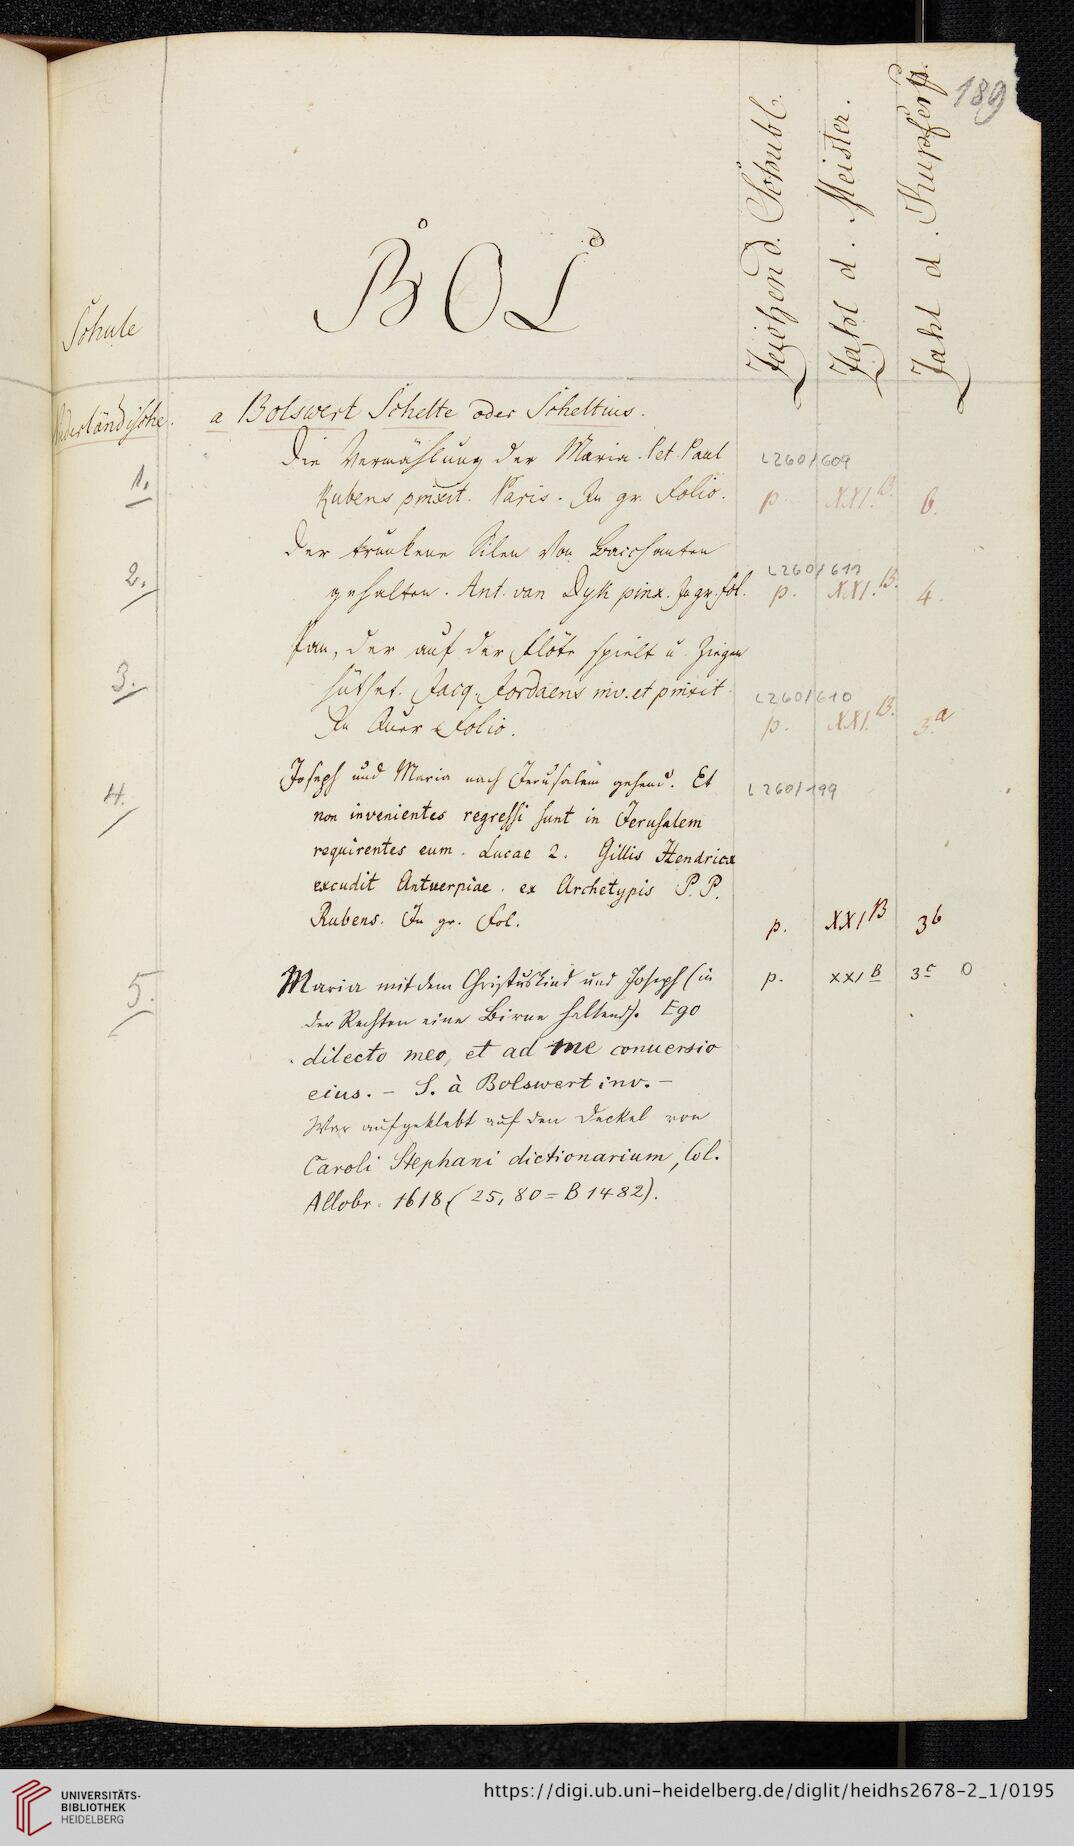 189
Zeichen d. Schubl.
Zahl d. Meister.
Zahl d. Kupferst.
Schule
BOL
Niederländische.
a Bolswert Schelte oder Scheltius.
1.
Die Vermählung der Maria. Pet. Paul
L260/609
Rubens pinxit. Paris. In gr. Folio.
p XXI.B. 6.
2.
Der trunkene Silen von Bacchanten
L260/611
gehalten. Ant. van Dyk pinx. In gr. Fol.
p. XXI.B. 4.
3.
Pan, der auf der Flöte spielt u. Ziegen
hüthet. Jacq. Jordaens inv. et pinxit.
L260/610
In Quer Folio.
p. XXI.B. 3.a
4.
Joseph und Maria nach Jerusalem gehend. Et
L260/199
non invenientes regressi sunt in Jerusalem
requirentes eum. Lucae 2. Gillis Hendricx
excudit Antuerpiae. ex Archetypis P. P.
Rubens. In gr. Fol.
p. XXI B 3b
5.
Maria mit dem Christuskind und Joseph (in
p. XXI B 3c 0
der Rechten eine Birne haltend). Ego
dilecto meo, et ad me conuersio
eius. – S. à Bolswert inv. –
War aufgeklebt auf den Deckel von
Caroli Stephani dictionarium, Col.
Allobr. 1618 (25, 80 = B 1482).
UNIVERSITÄTS-
BIBLIOTHEK
HEIDELBERG
https://digi.ub.uni-heidelberg.de/diglit/heidhs2678-2_1/0195